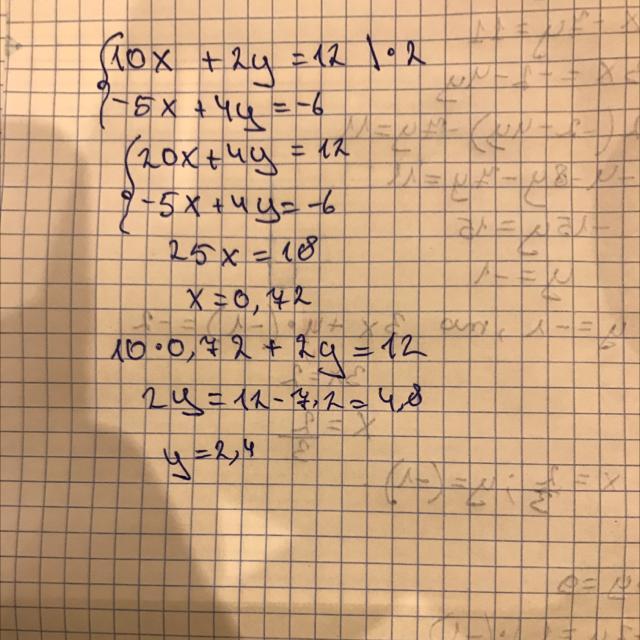 10x + 2y = 12 \ • 2
-5x + 4y = -6
20x + 4y = 12
-5x + 4y = -6
25x = 18
x = 0,72
10 • 0,72 + 2y = 12
2y = 12 - 7,2 = 4,8
y = 2,4